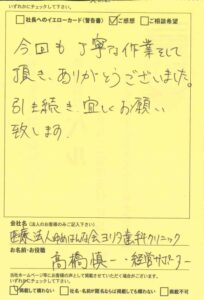 いずれかにチェックして下さい。
社長へのイエローカード(警告書) ✓ご感想 ご相談希望
今回も丁寧な作業をして
頂き、ありがとうございました。
引き続き宜しくお願い
致します。
会社名(法人のお客様のみご記入下さい)
医療法人ゆめはんな会ヨリタ歯科クリニック
お名前・お役職
高橋慎一・経営サポーター
当社ホームページ等にお客様の声として掲載させていただく場合がございます。
いずれかにチェックして下さい。
掲載して構わない 社名・名前が匿名ならば掲載しても構わない 掲載不可